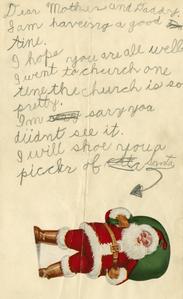 Dear Mother and Daddy.
I am haveing a good
time.
I hope you are all well
I went to church one
time the church is so
pretty.
I'm sary you
didnt see it.
I will shoe you a
piccker of Santa